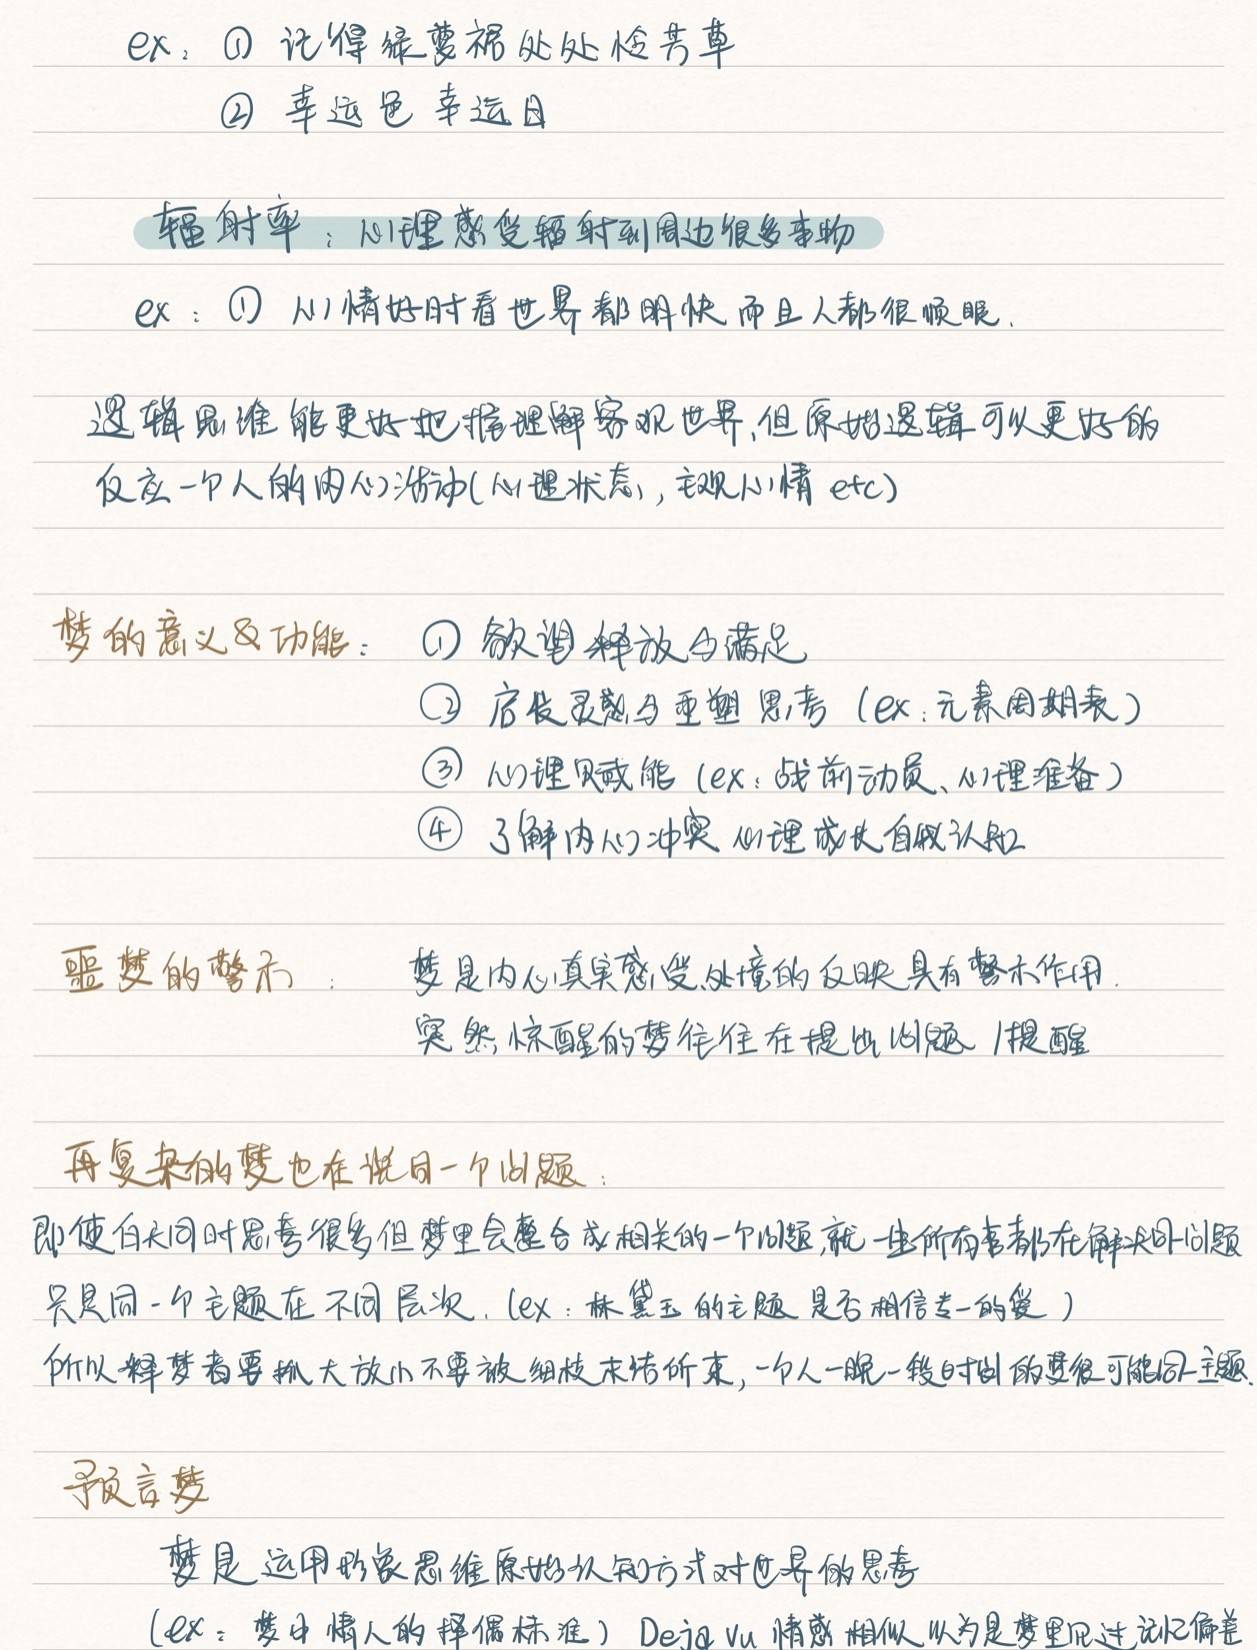 ex: ① 记得绿萝裙 处处怜芳草
② 幸运色 幸运日
辐射率：心理感受辐射到周边很多事物
ex：① 心情好时看世界都明快而且人都很顺眼.
逻辑思维能更好把握理解客观世界,但原始逻辑可以更好的
反应一个人的内心活动(心理状态,主观心情 etc)
梦的意义&功能: ① 欲望释放与满足
② 启发灵感与重塑思考 (ex:元素周期表)
③ 心理贝或能 (ex:战前动员、心理准备)
④ 了解内心冲突 心理成长自我认知
噩梦的警示: 梦是内心真实感受,处境的反映具有警示作用.
突然惊醒的梦往往在提出问题/提醒
再复杂的梦也在说同一个问题:
即使白天同时思考很多但梦里会整合成相关的一个问题,就一生所有书都在解决同一问题
只是同一个主题在不同层次. (ex:林黛玉的主题是否相信专一的爱)
所以释梦者要抓大放小不要被细枝末结所束,一个人一晚一段时间的梦很可能同一主题.
预言梦
梦是运用形象思维原始认知方式对世界的思考
(ex: 梦中情人的择偶标准) Deja vu 情感相似以为是梦里见过 记忆偏差